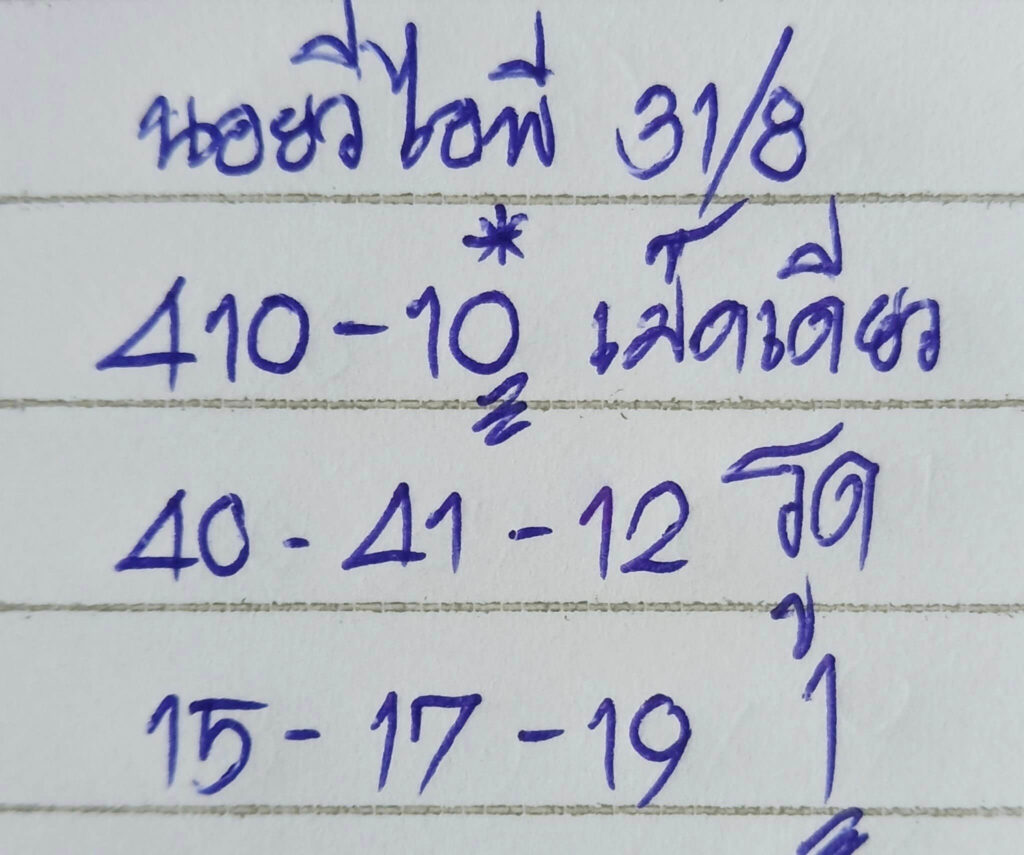 นอยวีไอพี 31/8
410-10* เม็ดเดียว
40-41-12 รูด
15-17-19 1